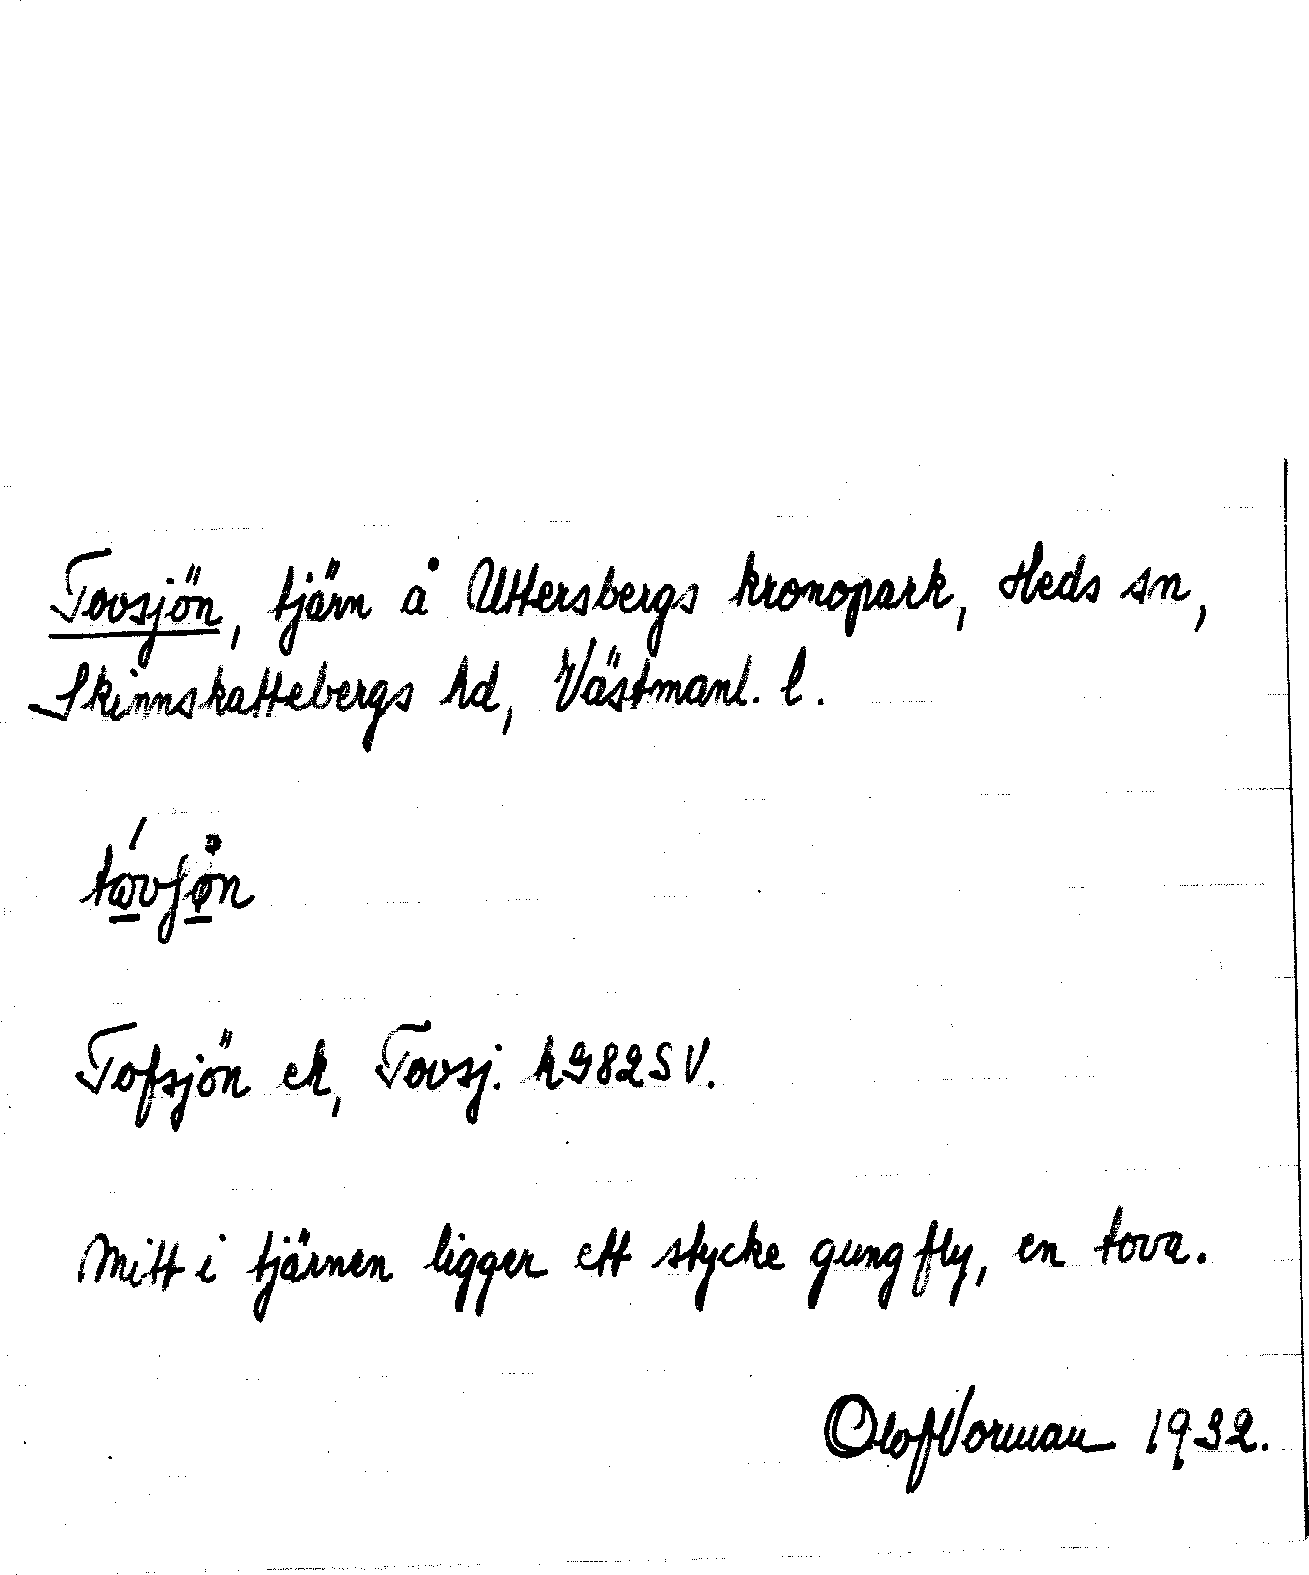 Tovsjön, tjärn å Uttersbergs kronopark, Heds sn,
Skinnskattebergs hd, Västmanl. l.
Tofsjön ek, Tovsj. h982SV.
Mitt i tjärnen ligger ett stycke gungfly, en tova.
Olof Vorman 1932.